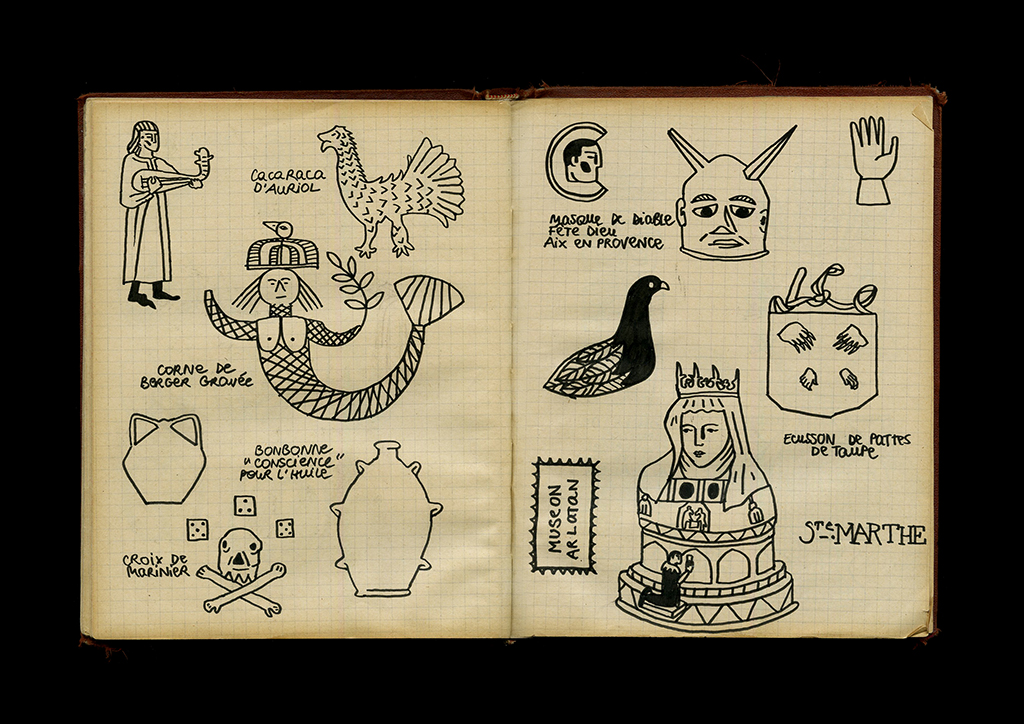 CACARACA
D'AURIOL
CORNE DE
BERGER GRAVÉE
BONBONNE
"CONSCIENCE"
POUR L'HUILE
CROIX DE
MARINIER
MASQUE DE DIABLE
FÊTE DIEU
AIX EN PROVENCE
ECUSSON DE PATTES
DE TAUPE
MUSEON
ARLATAN
STE MARTHE